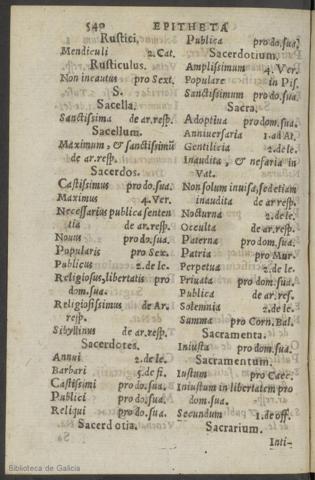 540 EPITHETA
Rustici.
Mendiculi 2.Cat.
Rusticulus.
Non incautus pro Sext.
S.
Sacella.
Sanctissima de ar.resp.
Sacellum.
Maximum, & sanctissimū
de ar.resp.
Sacerdos.
Castissimus pro do.sua.
Maximus 4.Ver.
Necessarius publica senten
tia de ar.resp.
Nouus pro do.sua.
Popularis pro Sex.
Publicus 2.de le.
Religiosus,libertatis pro
dom.sua.
Religiosissimus de Ar.
resp.
Sibyllinus de ar.resp.
Sacerdotes.
Annui 2.de le.
Barbari 5.de fi.
Castissimi pro do.sua.
Publici pro do.sua.
Reliqui pro do.sua.
Sacerdotia.
Publica pro do.sua.
Sacerdotium.
Amplissimum 4.Ver.
Populare in Pis.
Sanctissimum pro do.sua.
Sacra.
Adoptiua pro dom.sua.
Anniuersaria 1.ad At.
Gentilicia 2.de le.
Inaudita, & nefaria in
Vat.
Non solum inuisa, sed etiam
inaudita de ar resp.
Nocturna 2.de le.
Occulta de ar.resp.
Paterna pro dom.sua.
Patria pro Mur.
Perpetua 2.de le.
Priuata pro dom.sua.
Publica de ar.res.
Solemnia 2.de le.
Summa pro Corn.Bal.
Sacramenta.
Iniusta pro dom.sua.
Sacramentum.
Iustum pro Caec.
Iniustum in libertatem pro
dom.sua.
Secundum 1.de off.
Sacrarium.
Inti-
Biblioteca de Galicia